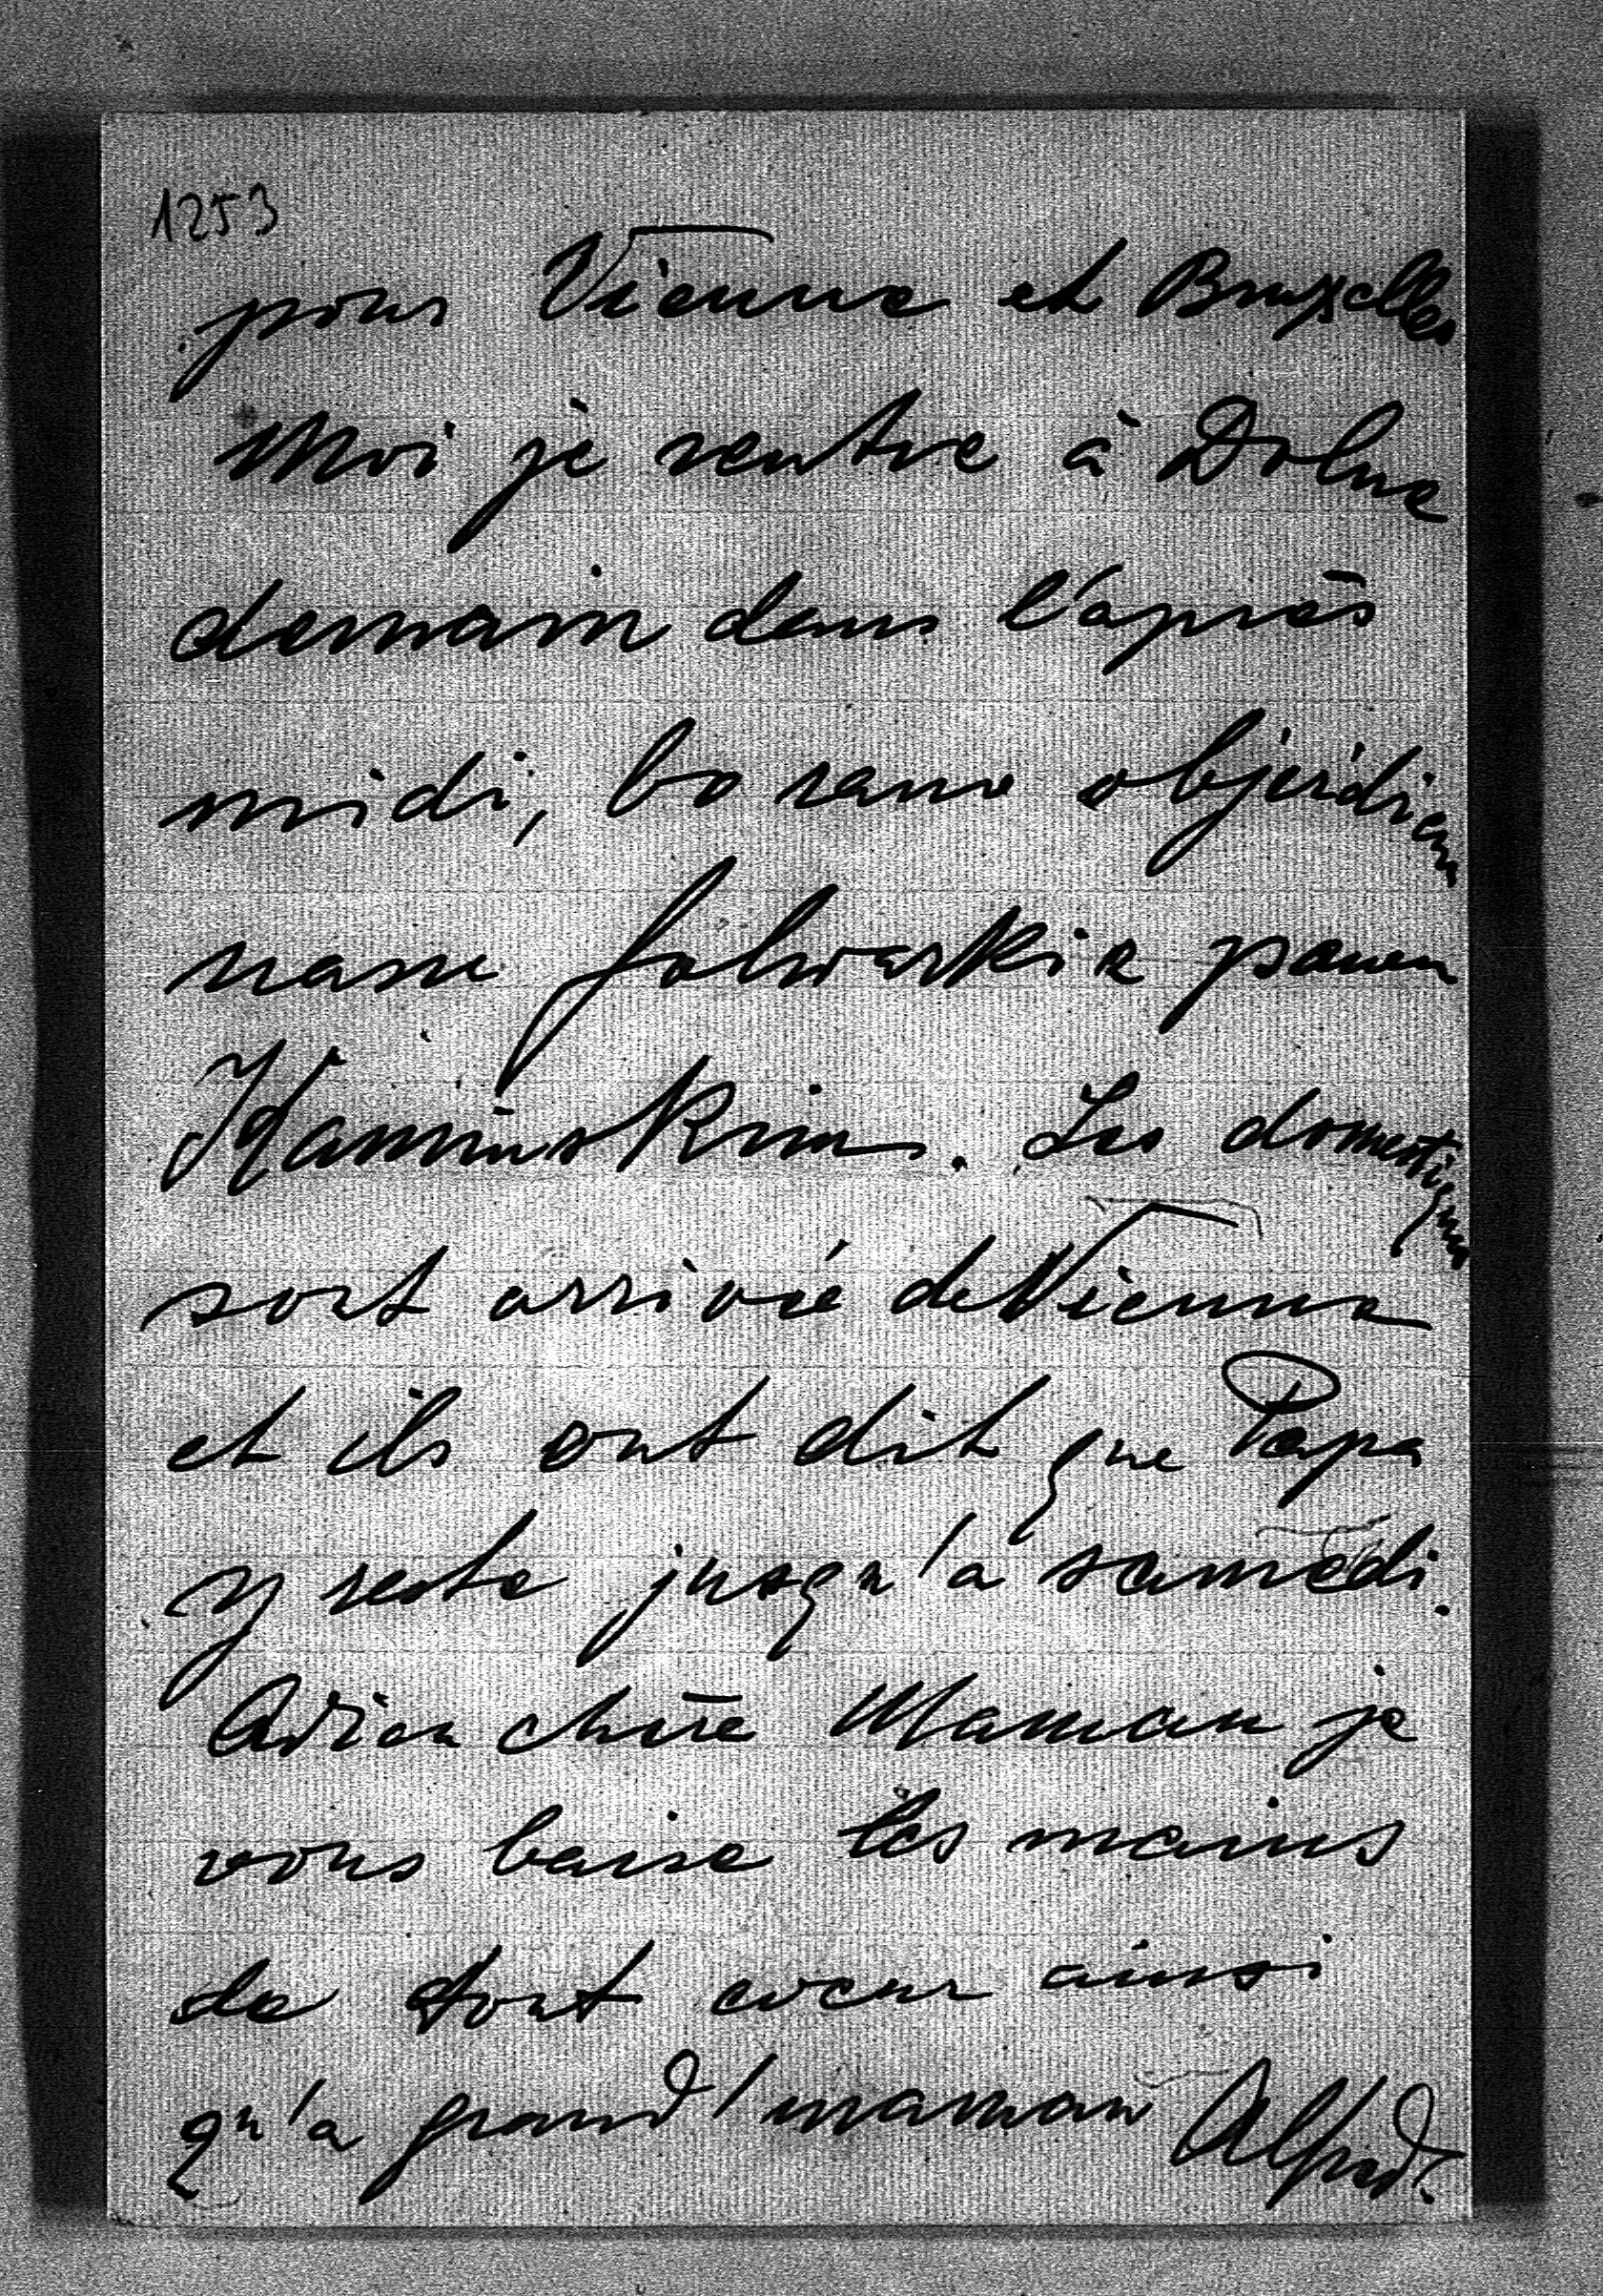 1253
pour Vienne et Bruxelles
Moi je rentre à Dolne
demain dans l'après
midi, bo rano objeżdżam
nasze folwarki z panem
Kamińskim. Les domestiques
sont arrivé de Vienne
et ils ont dit que Papa
y reste jusqu'a samedi.
Adieu chère Maman je
vous baise les mains
de tout coeur ainsi
qu'a grand'maman Alfred.